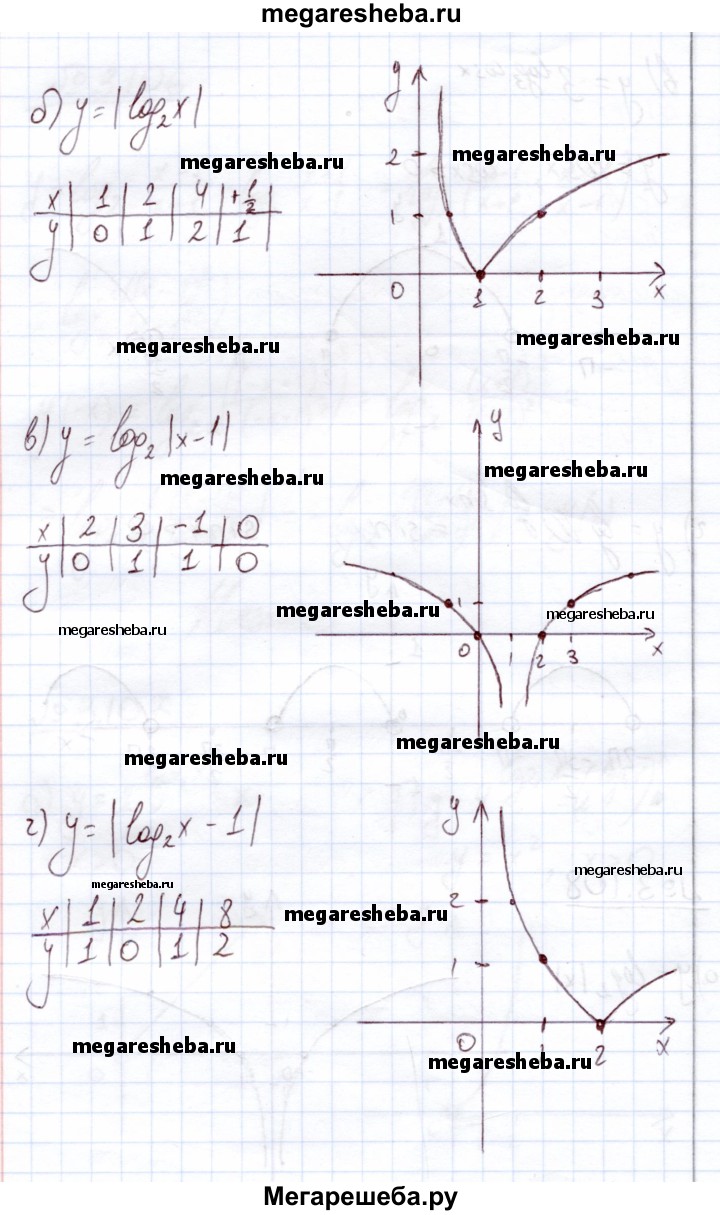 megaresheba.ru
б) y = |log₂x|
y
megaresheba.ru
megaresheba.ru
2
x | 1 | 2 | 4 | +1/2 |
y | 0 | 1 | 2 | 1 |
1
0 1 2 3 x
megaresheba.ru
megaresheba.ru
в) y = log₂|x-1|
y
megaresheba.ru
megaresheba.ru
x | 2 | 3 | -1 | 0
y | 0 | 1 | 1 | 0
1
megaresheba.ru
megaresheba.ru
megaresheba.ru
0 1 2 3 x
megaresheba.ru
megaresheba.ru
г) y = |log₂x - 1|
y
megaresheba.ru
megaresheba.ru
x | 1 | 2 | 4 | 8
y | 1 | 0 | 1 | 2
megaresheba.ru
2
1
0 1 2 x
megaresheba.ru
megaresheba.ru
Мегарешеба.ру